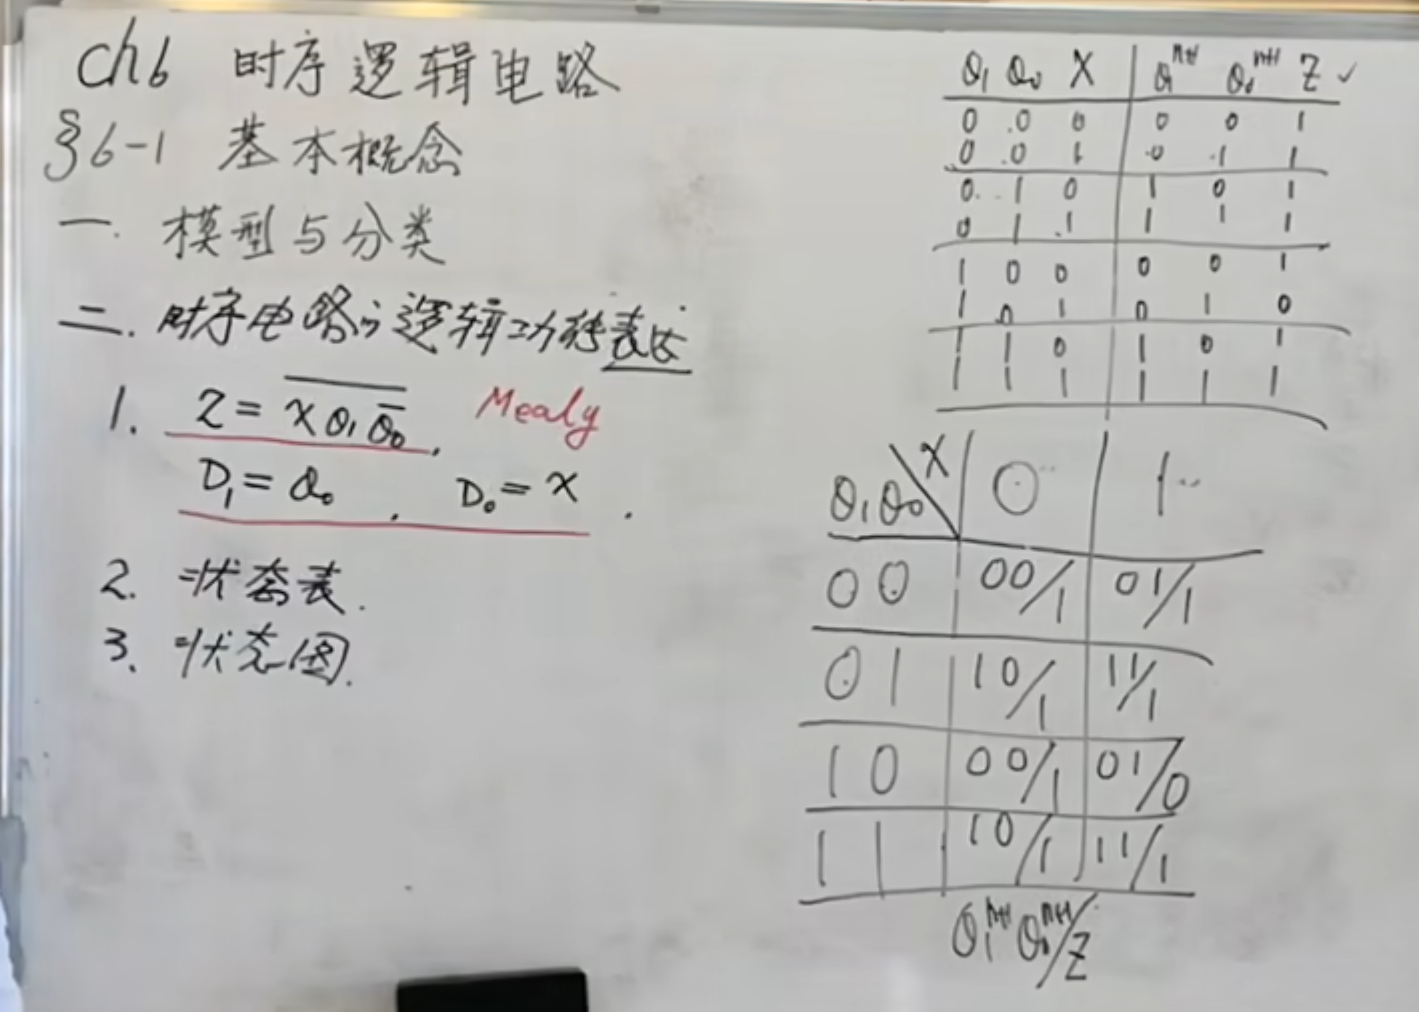 ch6 时序逻辑电路
§6-1 基本概念
一. 模型与分类
二. 时序电路的逻辑功能表达
1. Z = \overline{X Q₁ \overline{Q₀}}. Mealy
D₁ = Q₀ . D₀ = X .
2. 状态表.
3. 状态图.
Q₁ Q₀ X | Q₁ⁿ⁺¹ Q₀ⁿ⁺¹ Z ✓
0 0 0 | 0 0 1
0 0 1 | 0 1 1
0 1 0 | 1 0 1
0 1 1 | 1 1 1
1 0 0 | 0 0 1
1 0 1 | 0 1 0
1 1 0 | 1 0 1
1 1 1 | 1 1 1
Q₁Q₀ \ X | 0 | 1
00 | 00/1 | 01/1
01 | 10/1 | 11/1
10 | 00/1 | 01/0
11 | 10/1 | 11/1
Q₁ⁿ⁺¹ Q₀ⁿ⁺¹/Z